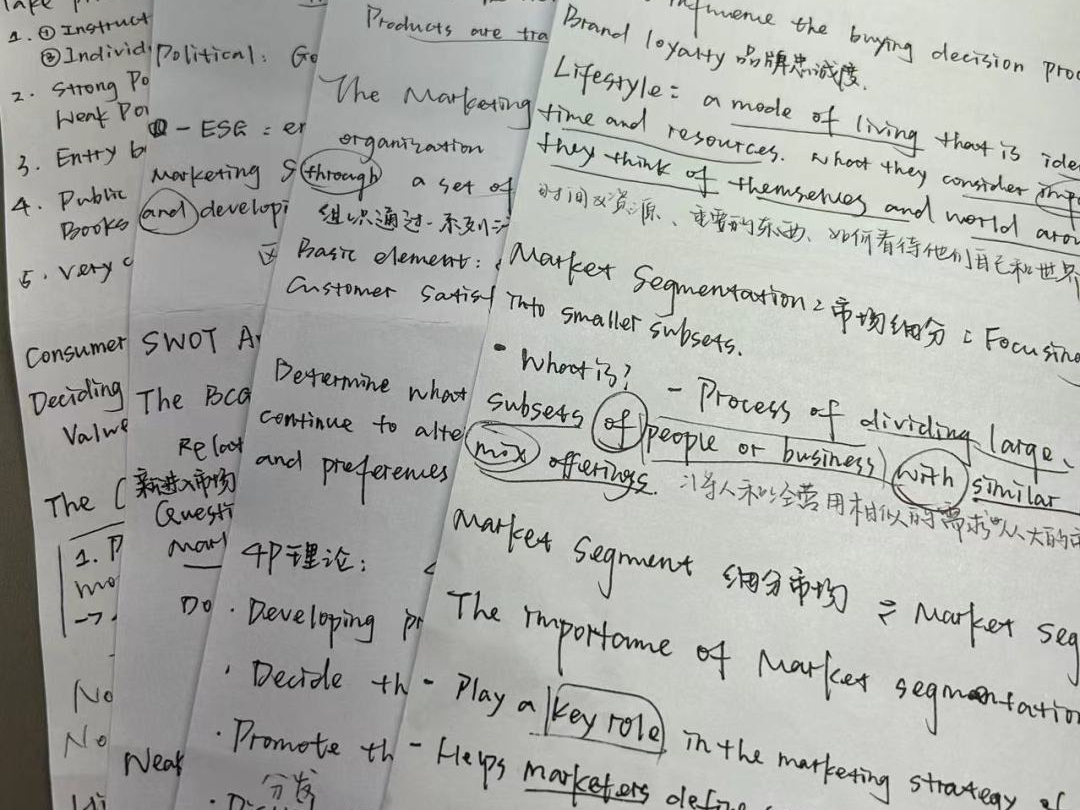 1. ① Instruct
② Individ
2. Strong Po
Weak Poi
3. Entry b
4. Public
Books
5. Very c
Consumer
Deciding
Value
The
1. P
mo
->
No
No
Political: Go
- ESG = en
Marketing S
and developi
SWOT A
The BCG
Relat
新进入市场
Questi
Mark
Do
Neat
Products are tra
The Marketing
organization
through a set of
组织通过一系列
Basic element:
Customer Satisf
Determine what
continue to alte
and preferences
4P理论:
· Developing pr
· Decide th
· Promote th
分发
influence the buying decision proc
Brand loyalty 品牌忠诚度.
Lifestyle = a mode of living that is iden
time and resources. What they consider imp
they think of themselves and world arou
时间及资源、重要的东西、如何看待他们自己和世界
Market Segmentation: 市场细分: Focusing
into smaller subsets.
• What is? - Process of dividing large,
subsets of people or business with similar
mix offerings. 将人和 用相似的需求从大的市
Market Segment 细分市场 = Market Seg
The importance of Market segmentation
- Play a key role in the marketing strategy of
- Helps marketers define